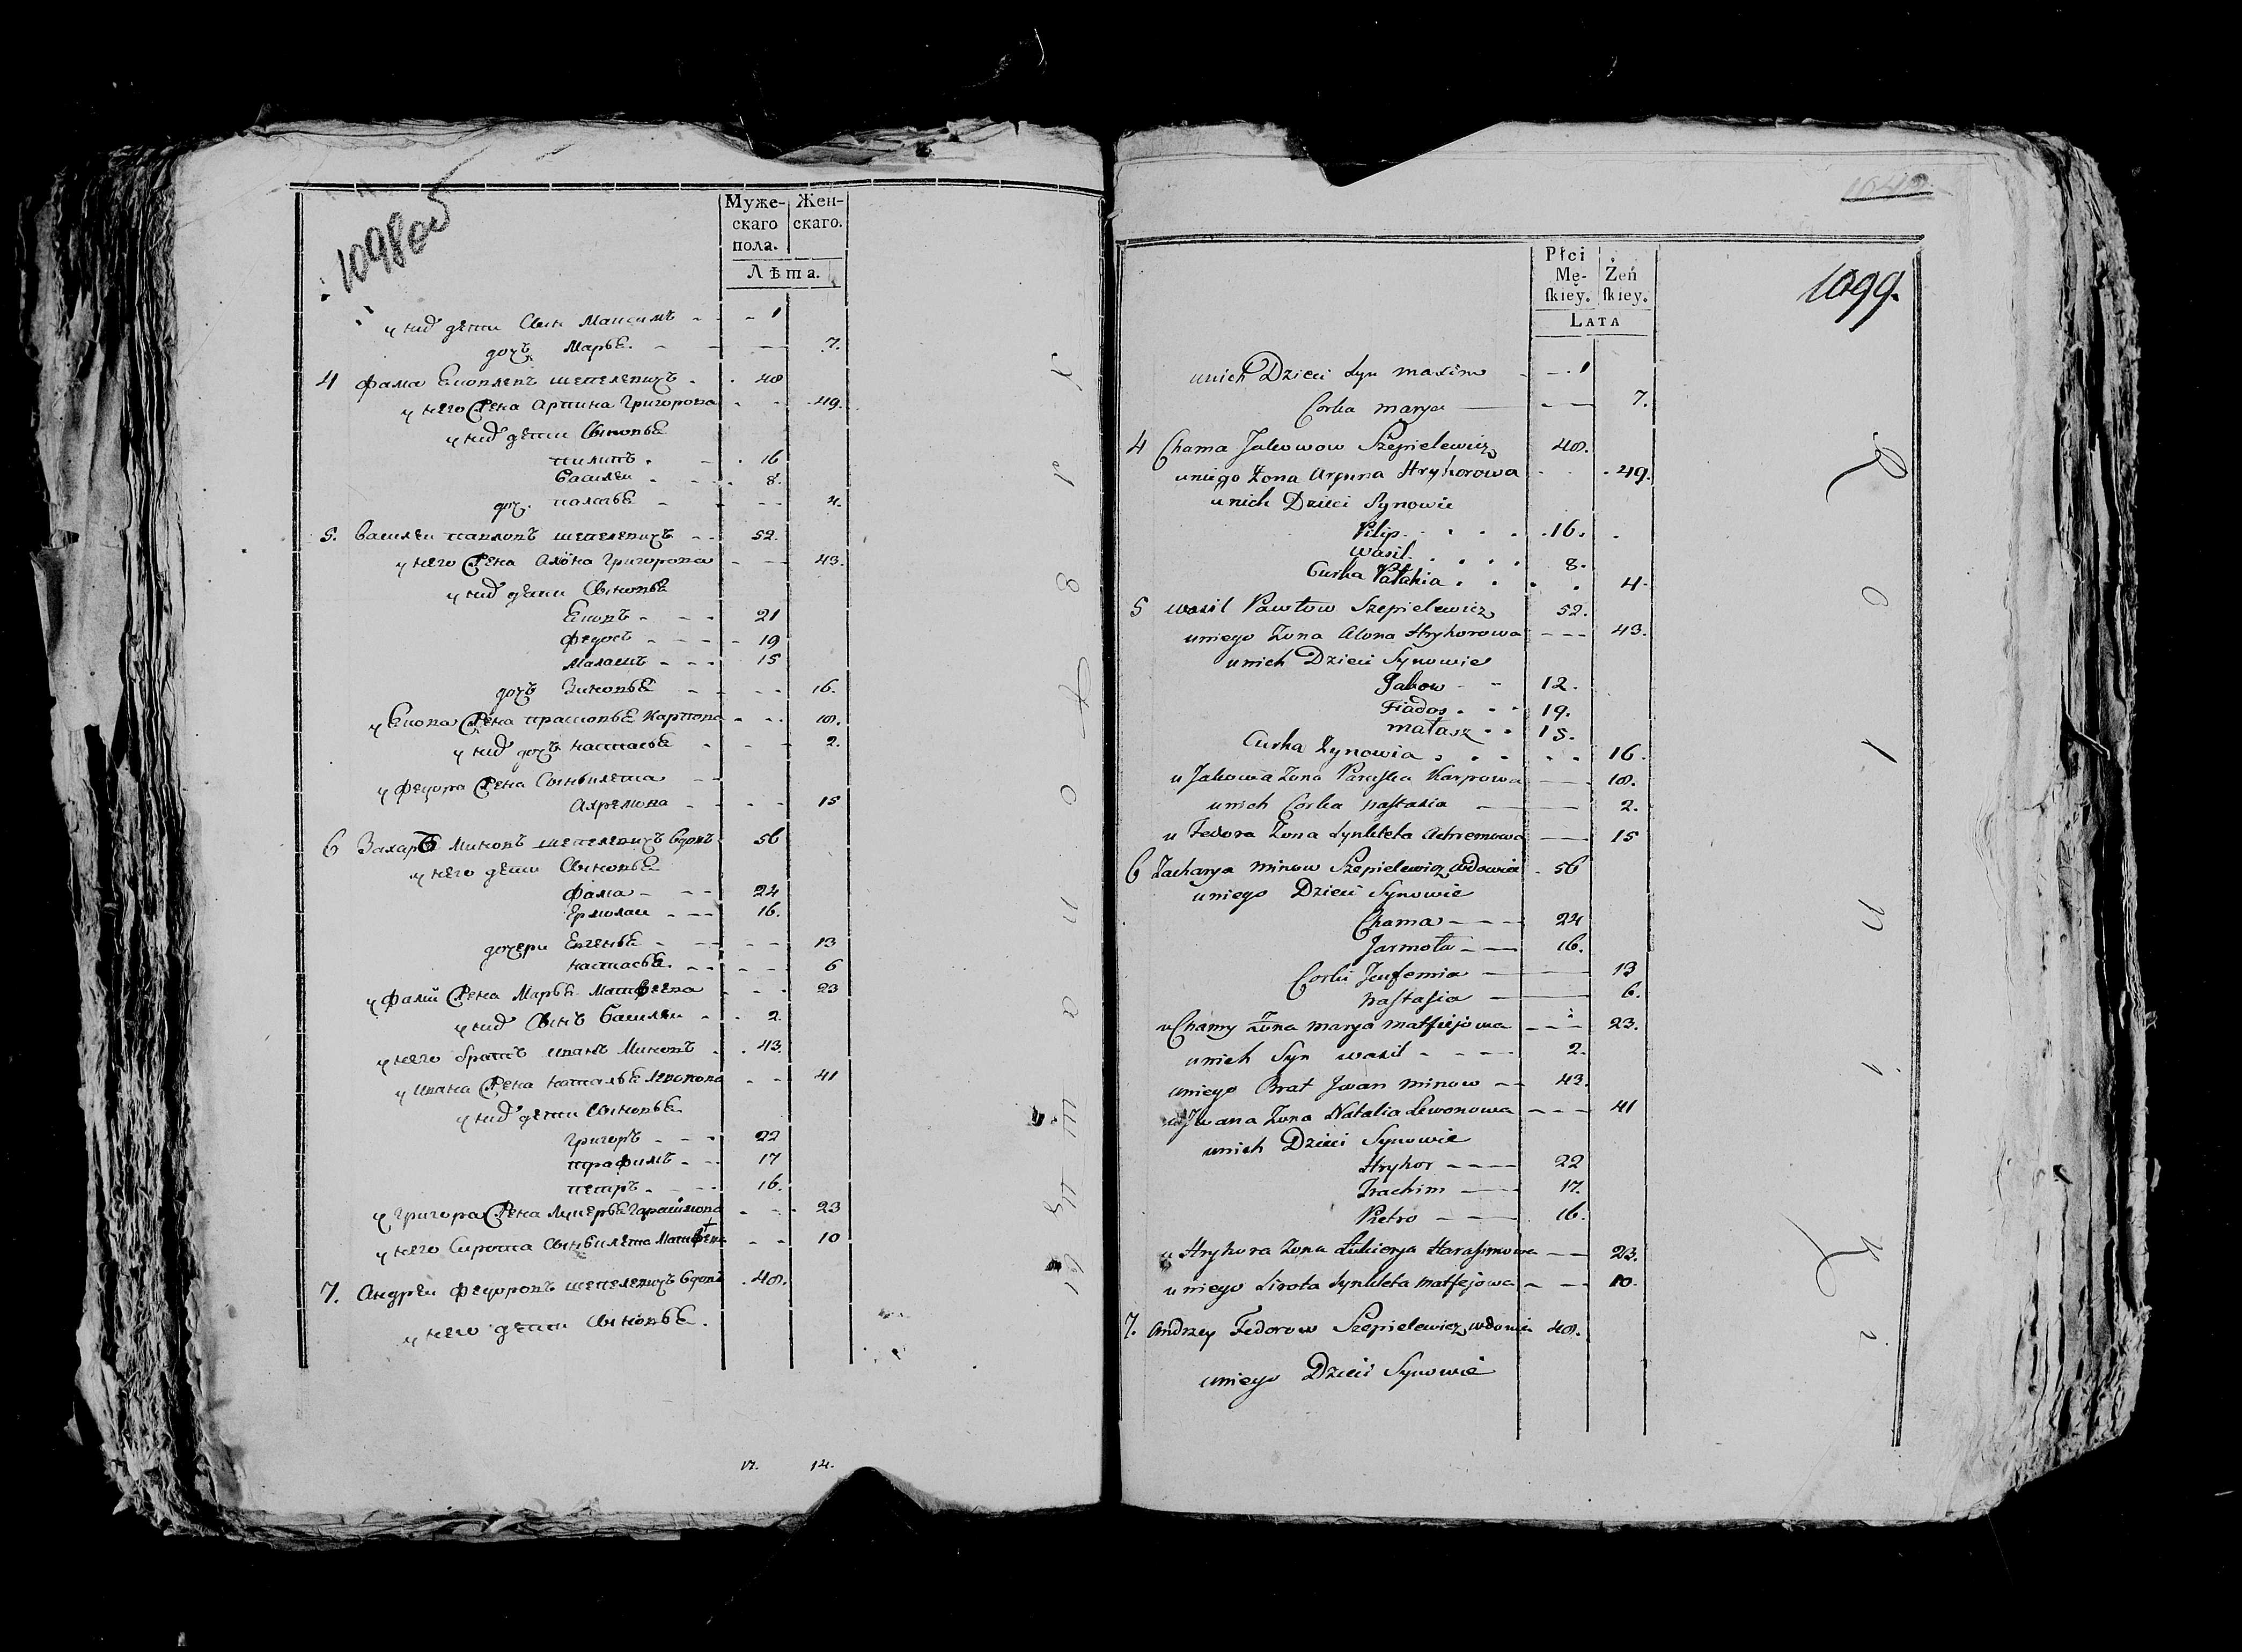 1098об
Муже-скаго пола. Жен-скаго.
Лѣта.
у них дети Сын Максимъ - - 1
дочъ Марья. - - 7.
4 Фама Ековлевъ шепелевичъ . 48
у него Жена Арпина Григорова - - 49.
у них дети Сыновья
пилипъ . - . 16
Василеи - - - 8.
доч. палагья - - 4.
5. Василеи павловъ шепелевичъ - - 52.
у него Жена Алёна Григорова - - 43.
у них дети Сыновья
Ековъ - - - 21
Федосъ - - - 19
Малашъ - - - 15
дочъ Зиновья - - - 16.
у Екова Жена прасковья Карпова - - 18.
у них дочъ настасья - - 2.
у Федора Жена Сынклета - -
Ахремова - - - 15
6 Захаръ Миновъ шепелевичъ вдовъ 56
у него дети Сыновья
Фама - - - 24
Ермолаи - - - 16.
дочери Евгенья - - - 13
настасья - - - 6
у Фамы Жена Марья Матфеева - - 23
у них Сынъ Василеи - . 2.
у него братъ иванъ Миновъ . . 43.
у ивана Жена наталья Левонова - - 41
у них дети Сыновья
Григоръ - - - 22
трафимъ - - - 17
петръ - - - 16.
у Григора Жена Лукерья Гарасимова - - 23
у него Сирота Сынклета Матфеева - - 10
7. Андреи Федоровъ шепелевичъ вдовъ . 48.
у него дети Сыновья.
17. 14.
1099.
Płci Mę-ſkiey. Żeń ſkiey.
LATA
unich Dzieci Syn maxim - - . 1
Corka marya - - 7.
4 Chama Jakowow Szepielewicz 48.
uniego Zona Arpina Hryhorowa - . . 49.
unich Dzieci Synowie
Pilip . . . . . 16. .
Wasil . . . . 8.
Curka Pałahia . . . . 4.
5 Wasil Pawłow Szepielewicz 52.
uniego Zona Alona Hryhorowa - - - 43.
unich Dzieci Synowie
Jakow - - 12.
Fiados . . . 19.
małasz . . 15.
Curka Zynowia . . . . . 16.
u Jakowa Zona Paraska Karpowa - - 18.
unich Corka nastazia - - 2.
u Fedora Zona Synkleta Achremowa - - 15
6 Zacharya minow Szepielewicz wdowiec . 56
uniego Dzieci Synowie
Chama - - - 24
Jarmoła - - 16.
Corki Jeufemia - - 13
nastasia - - 6.
u Chamy Zona marya matfiejowa - - - 23.
unich Syn wasil - - - - 2.
uniego Brat Jwan minow - - 43.
u Jwana Zona Natalia Lewonowa - - - 41
unich Dzieci Synowie
Hryhor - - - - 22
Trachim - - - 17.
Pietro - - - 16.
u Hryhora Zona Łukierya Harasimowa - - 23.
uniego Sirota Synkleta matfejowa - - - 10.
7. Andrzey Fedorow Szepielewicz wdowiec 48.
uniego Dzieci Synowie